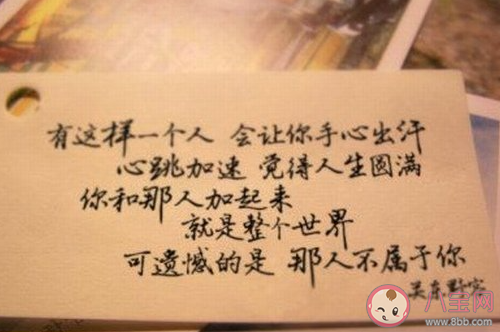 有这样一个人 会让你手心出汗
心跳加速 觉得人生圆满
你和那人加起来
就是整个世界
可遗憾的是 那人不属于你
关东野客
八宝网
www.8bb.com